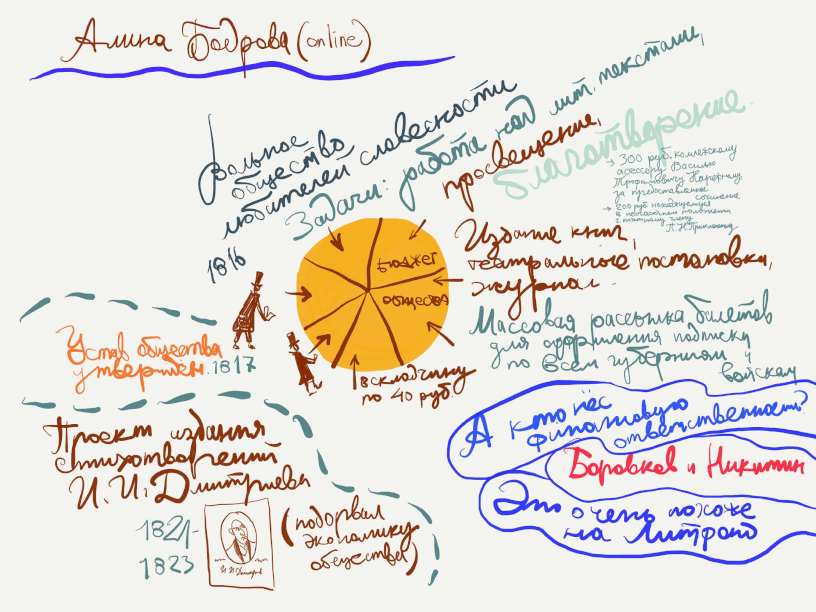 Алина Бодрова (online)
Вольное
общество
любителей словесности
1816
Задачи: работа над лит. текстами,
просвещение,
благотворение
→ 300 руб. коллежскому
асессору Василию
Трофимовичу Нарежному
за предоставленные
сочинения
→ 200 руб. находящемуся
в несчастном положении
бюджет
общества
вскладчину
по 40 руб.
Издание книг,
театральные постановки,
журнал.
Массовая рассылка билетов
для оформления подписки
по всем губерниям и
войскам
Устав общества
утверждён. 1817
Проект издания
стихотворений
И.И. Дмитриева
1821-
1823
И.И. Дмитриев
(подорвал
экономику
общества)
А кто нёс
финансовую
ответственность?
Боровков и Никитин
Это очень похоже
на Литфонд